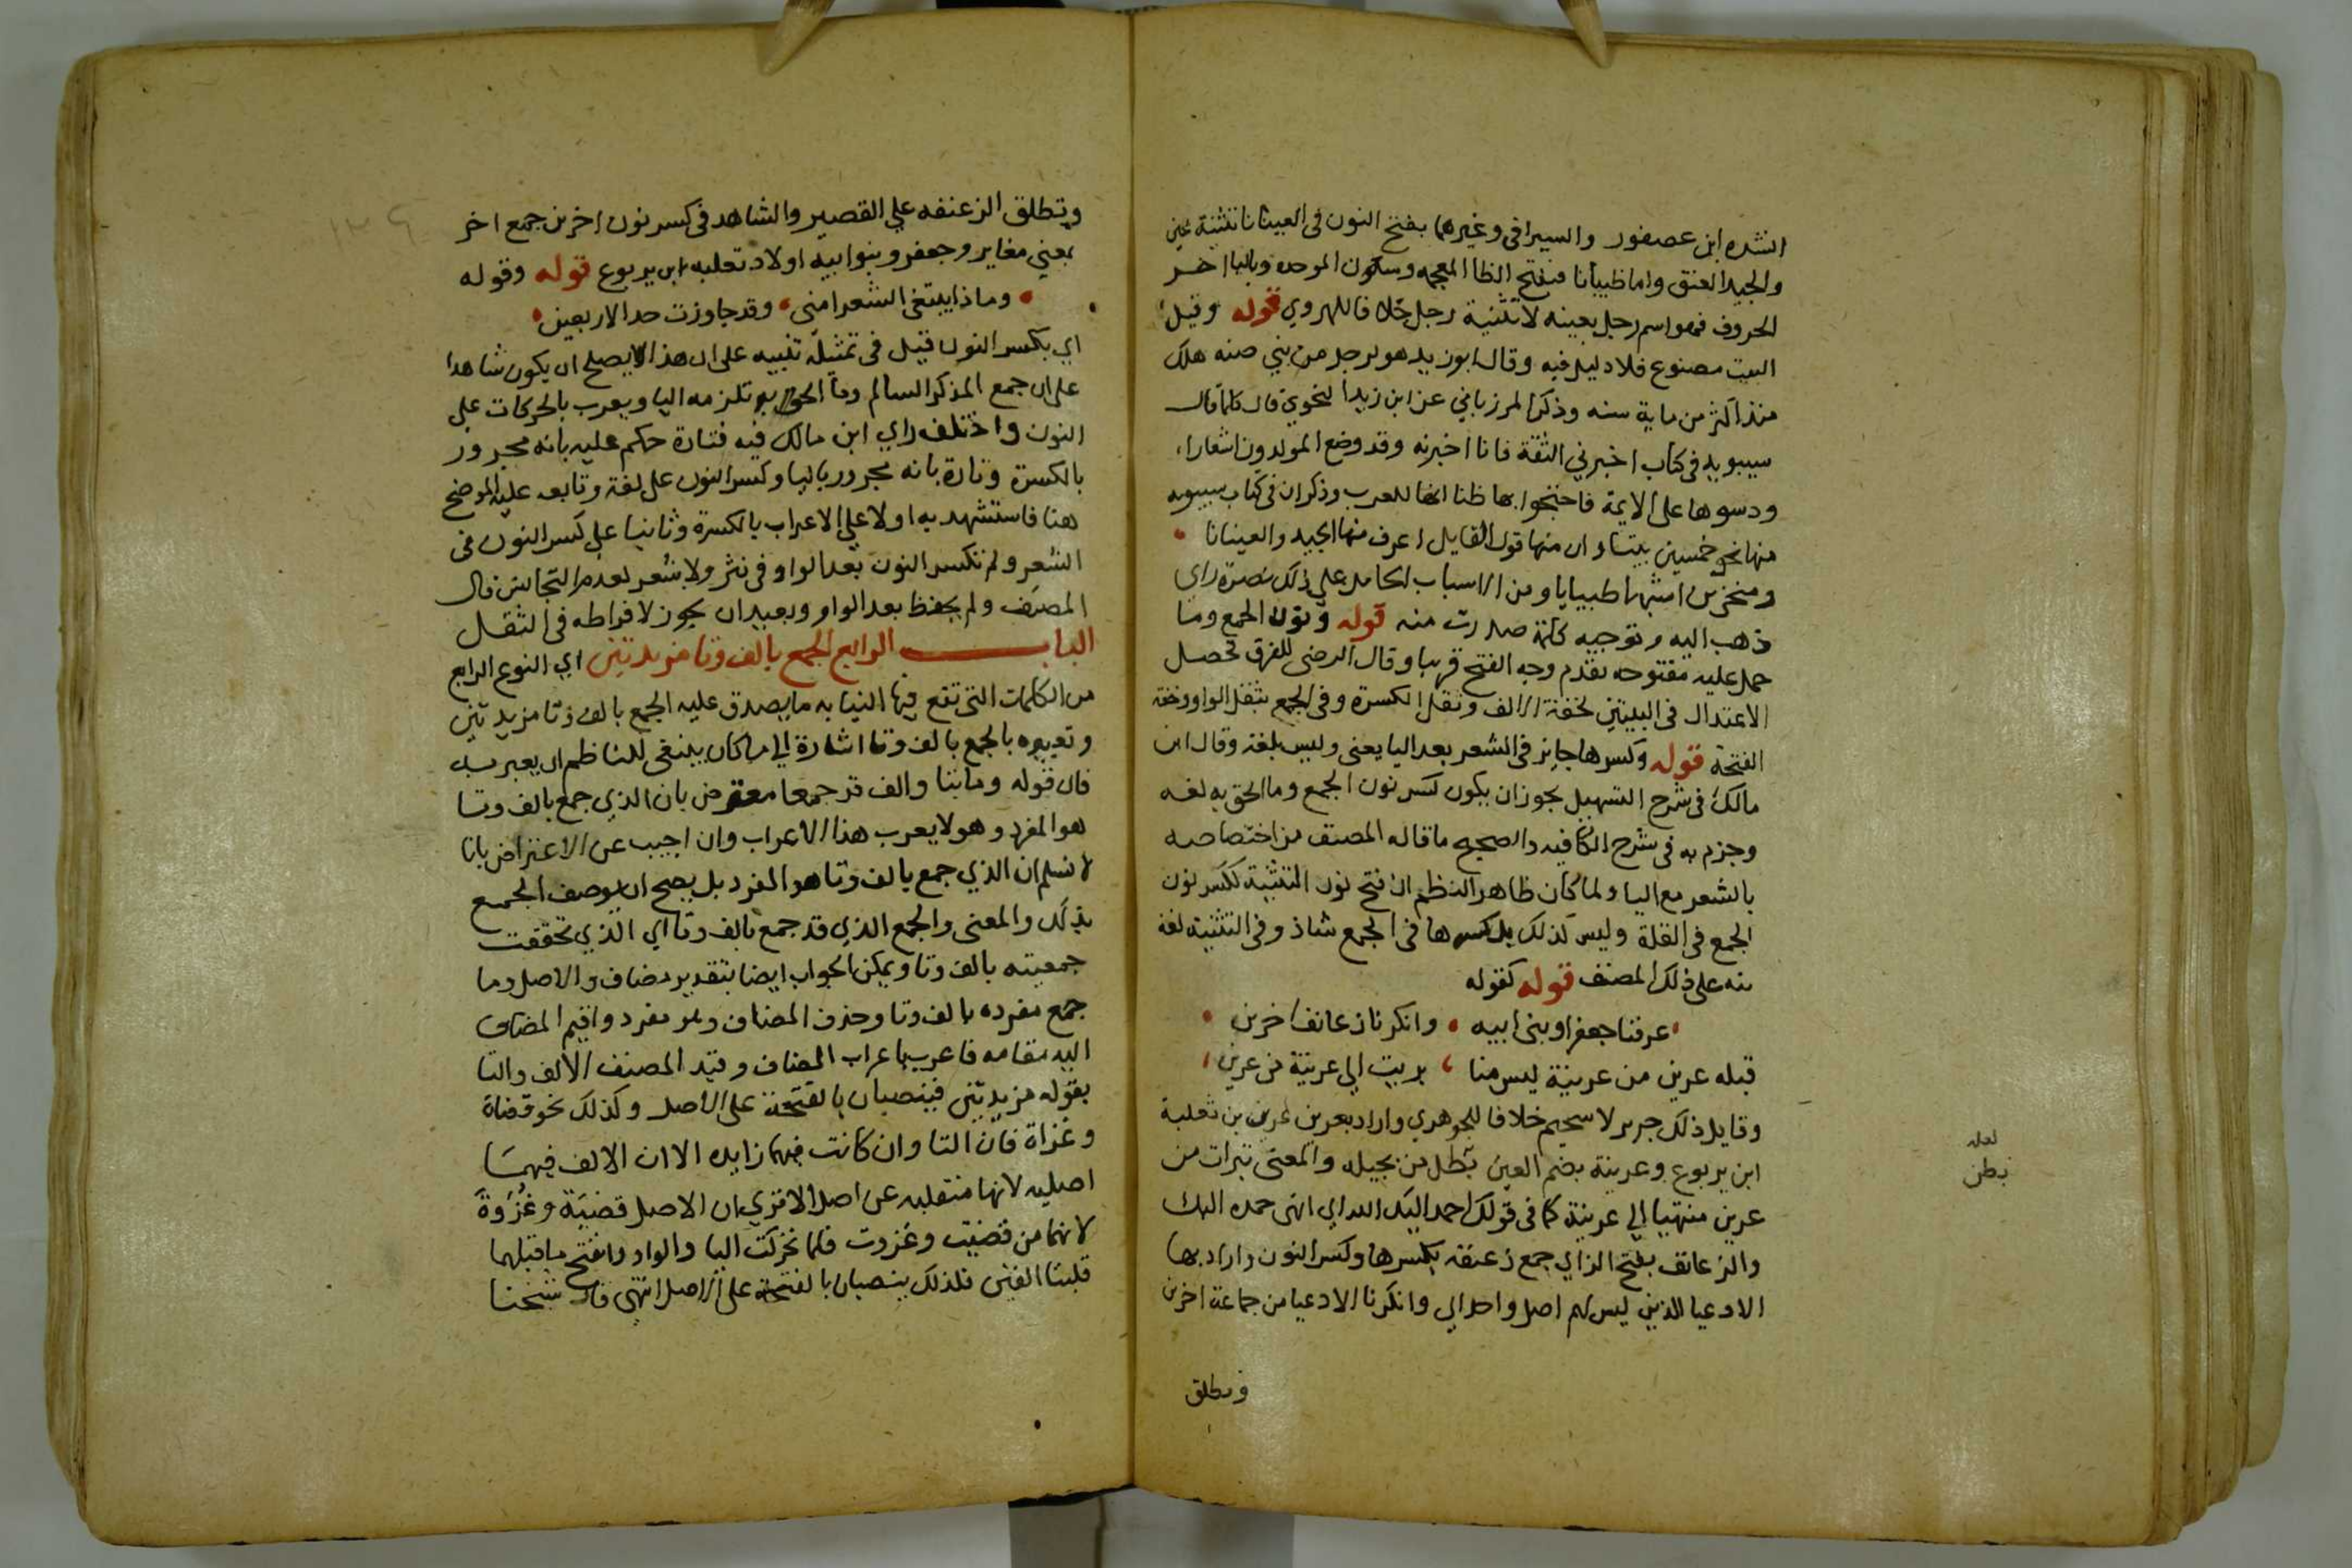 انشده ابن عصفور والسيرافي وغيرهما بفتح النون في العينانا تثنية عين
والجيد العنق واما ظبيانا فبفتح الظا المعجمه وسكون الموحده وباليا اخر
الحروف فهو اسم رجل بعينه لا تثنية رجل خلافا للهروي قوله وقيل
البيت مصنوع فلا دليل فيه وقال ابو زيد هو لرجل من بني ضبه هلك
منذ اكثر من ماية سنه وذكر المرزباني عن ابن زيد النحوي قال كلما قال
سيبويه في كتابه اخبرني الثقة فانا اخبرته وقد وضع المولدون اشعارا
ودسوها على الايمة فاحتجوا بها ظنا انها للعرب وذكر ان في كتاب سيبويه
منها نحو خمسين بيتا وان منها قول القايل اعرف منها الجيد والعينانا
ومنخرين اشبها ظبيانا ومن الاسباب الحامل على ذلك نصرة راي
ذهب اليه وتوجيه كلمة صدرت منه قوله ونون الجمع وما
حمل عليه مفتوحه تقدم وجه الفتح قريبا وقال الرضي للفرق تحصل
الاعتدال في البيتين لخفة الالف وثقل الكسرة وفي الجمع بثقل الواو وخفة
الفتحة قوله وكسرها جايز في الشعر بعد اليا يعني وليس بلغة وقال ابن
مالك في شرح التسهيل يجوز ان يكون كسر نون الجمع وما الحق به لغه
وجزم به في شرح الكافيه والصحيح ما قاله المصنف من اختصاصه
بالشعر مع اليا ولما كان ظاهر النظم ان فتح نون التثنية ككسر نون
الجمع في القلة وليس كذلك بل كسرها في الجمع شاذ وفي التثنيه لغة
نبه على ذلك المصنف قوله كقوله
عرفنا جعفرا وبني ابيه وانكرنا زعانف اخرين
قبله عرين من عرينة ليس منا بريت الي عرينة من عرين
وقايل ذلك جرير لا سحيم خلافا للجوهري واراد بعرين عرين بن ثعلبة
ابن يربوع وعرينة بضم العين بطل من بجيله والمعنى تبرات من
عرين منتهيا الي عرينة كما في قولك احمد اليك الله اي انهى حمده اليك
والزعانف بفتح الزاي جمع زعنفه بكسرها وكسر النون واراد بها
الادعيا الذين ليس لهم اصل واحد اي وانكرنا الادعيا من جماعة اخرين
وتطلق
لعله
بطن
وتطلق الزعنفه علي القصير والشاهد في كسر نون اخرين جمع اخر
بمعني مغاير وجعفر وبنوا ابيه اولاد ثعلبه ابن يربوع قوله وقوله
وماذا يبتغي الشعرا مني وقد جاوزت حد الاربعين
اي بكسر النون قيل في تمثيله تنبيه على ان هذا لا يصلح ان يكون شاهدا
على ان جمع المذكر السالم وما الحق به تلزمه اليا ويعرب بالحركات على
النون واختلف راي ابن مالك فيه فتارة حكم عليه بانه مجرور
بالكسرة وتارة بانه مجرور باليا وكسر النون على لغة وتابعه عليه الموضح
هنا فاستشهد به اولا علي الاعراب بالكسرة وثانيا على كسر النون في
الشعر ولم تكسر النون بعد الواو في نثر ولا شعر لعدم التجانس قال
المصنف ولم يحفظ بعد الواو وبعيد ان يجوز لافراطه في الثقل
الباب الرابع الجمع بالف وتا مزيدتين اي النوع الرابع
من الكلمات التي تقع فيها النيابه ما يصدق عليه الجمع بالف وتا مزيدتين
وتعبيره بالجمع بالف وتا اشارة الي ما كان ينبغي للناظم ان يعبر به
فان قوله وما بتا والف قد جمعا معترض بان الذي جمع بالف وتا
هو المفرد وهو لا يعرب هذا الاعراب وان اجيب عن الاعتراض بانا
لا نسلم ان الذي جمع بالف وتا هو المفرد بل يصح ان يوصف الجمع
بذلك والمعنى والجمع الذي قد جمع بالف وتا اي الذي تحققت
جمعيته بالف وتا ويمكن الجواب ايضا بتقدير مضاف والاصل وما
جمع مفرده بالف وتا وحذف المضاف وهو مفرد واقيم المضاف
اليه مقامه فاعرب باعراب المضاف وقيد المصنف الالف والتا
بقوله مزيدتين فينصبان بالفتحة على الاصل وكذلك نحو قضاة
وغزاة فان التا وان كانت فيهما زايده الا ان الالف فيهما
اصليه لانها منقلبه عن اصل الا تري ان الاصل قضية وغزوة
لانهما من قضيت وغزوت فلما تحركت اليا والواو وانفتح ما قبلهما
قلبتا الفين فلذلك ينصبان بالفتحة على الاصل انتهي قال شيخنا